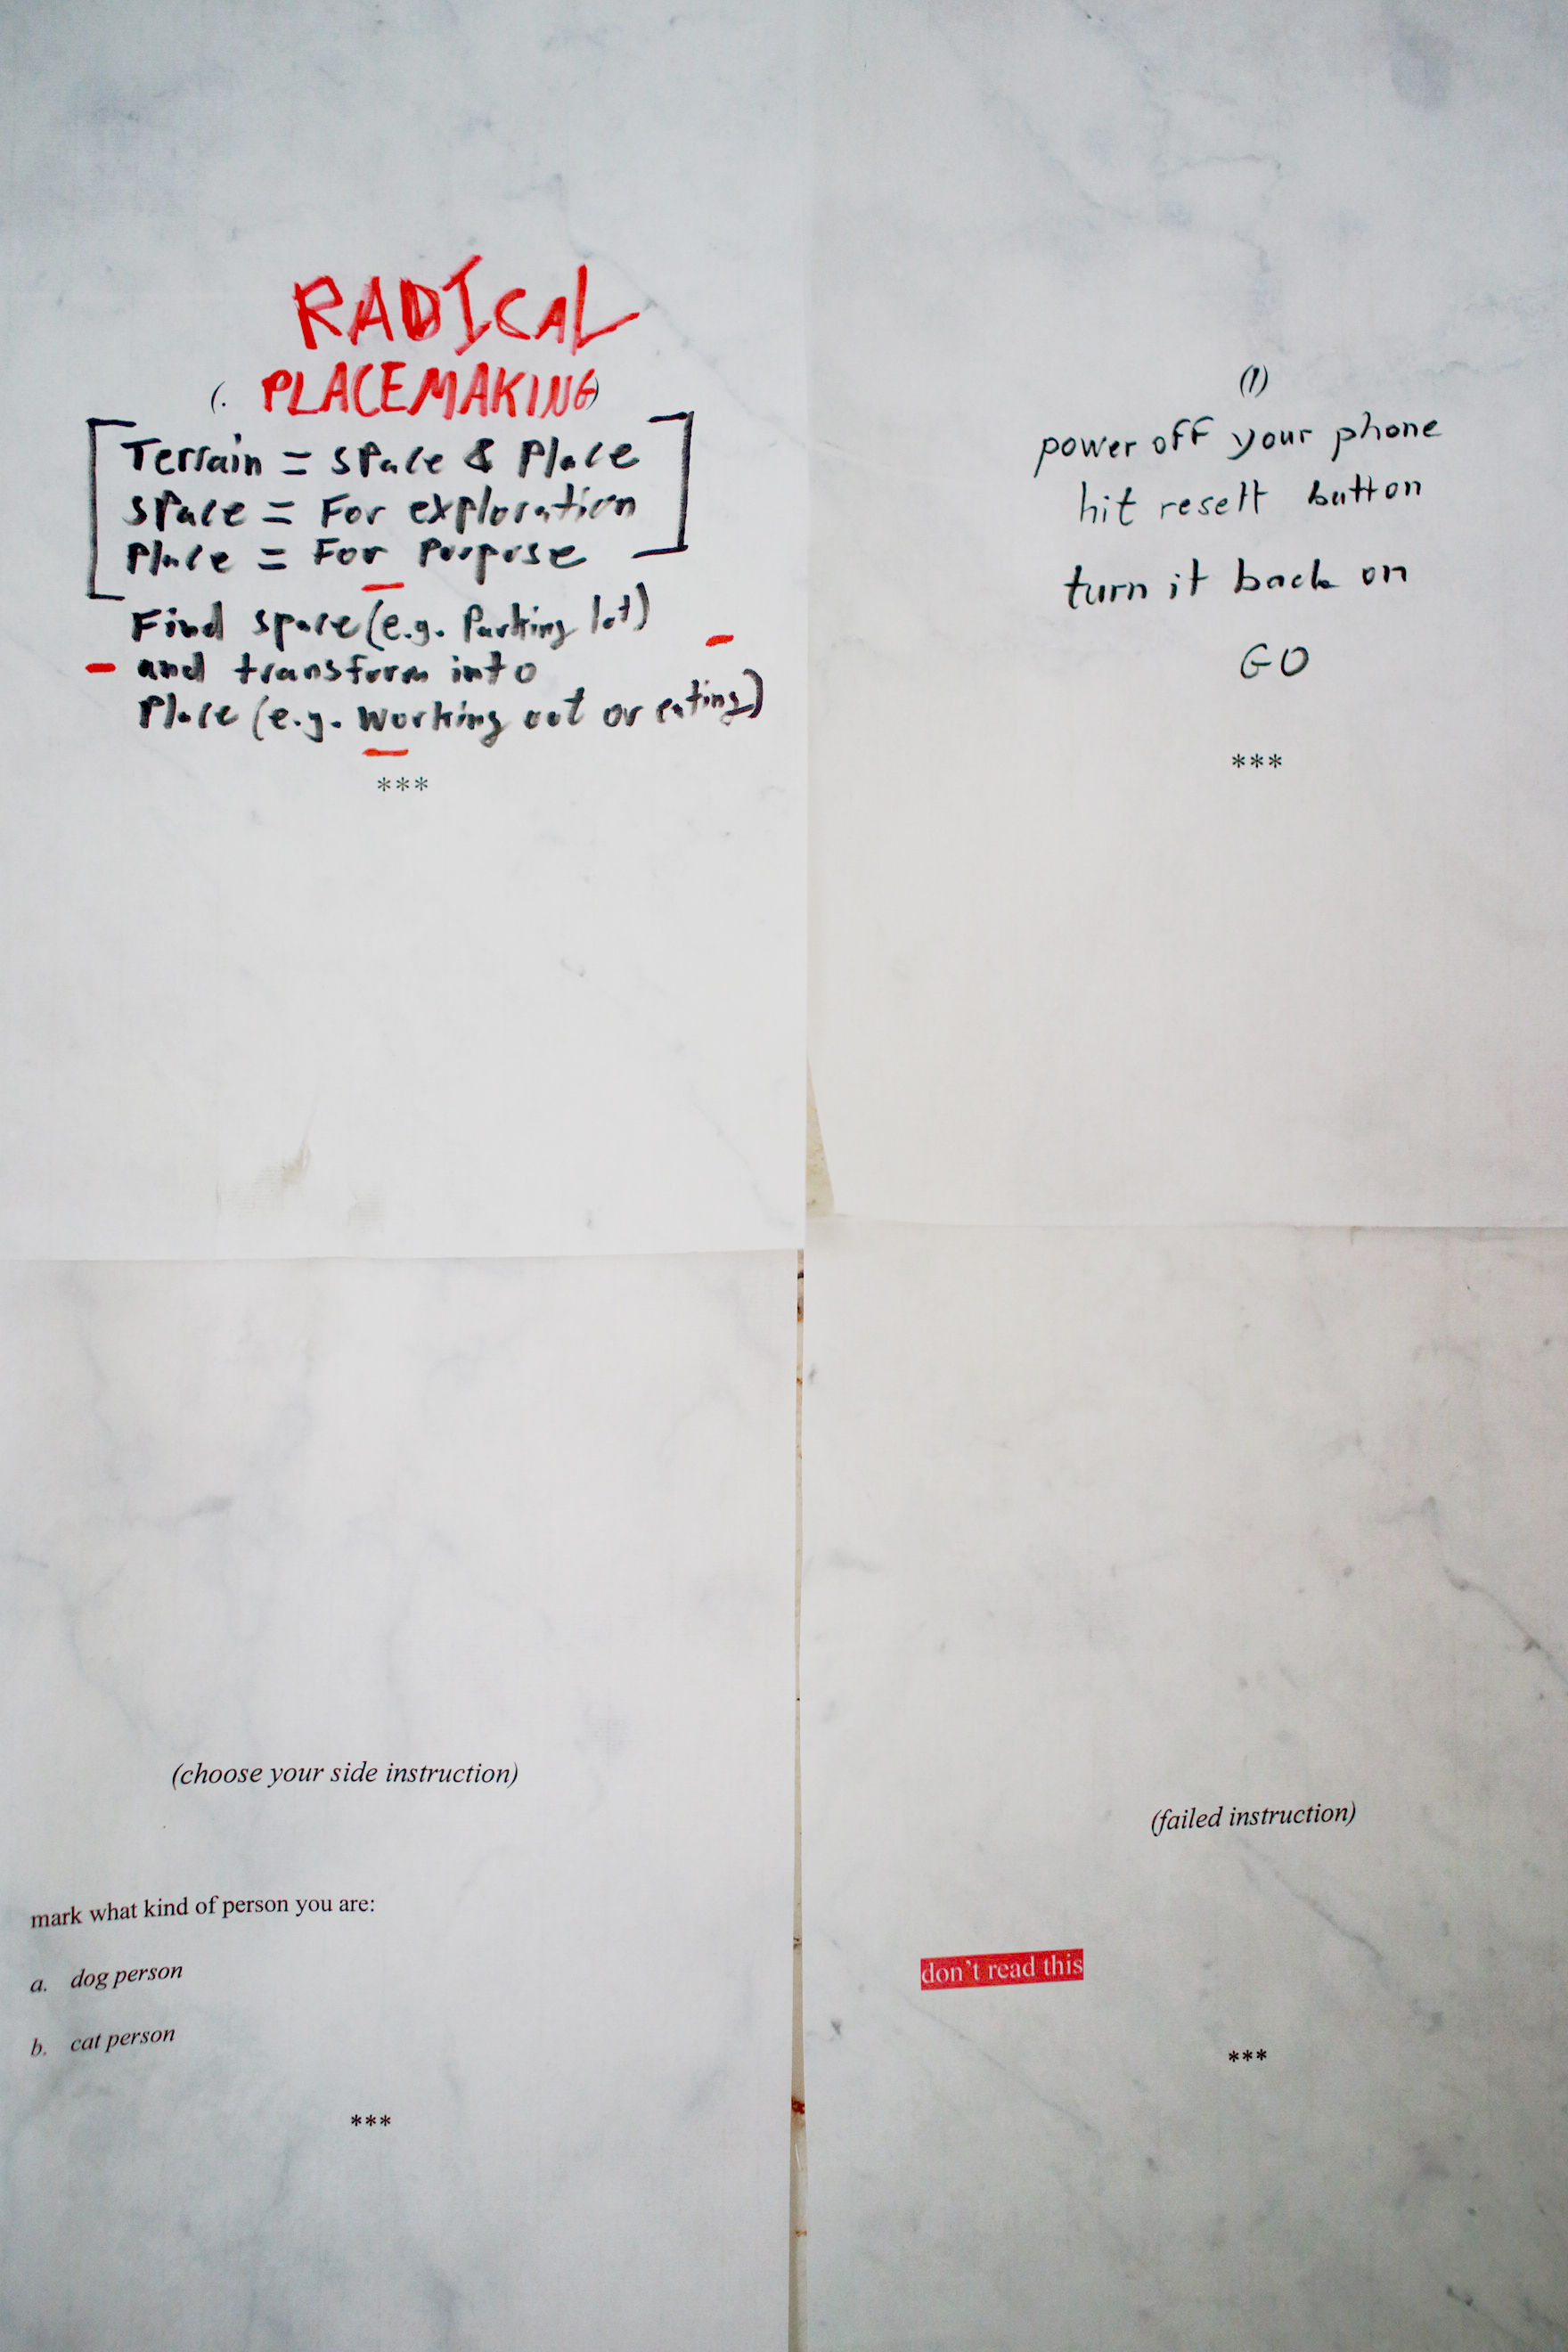 RADICAL
(. PLACEMAKING)
Terrain = space & Place
space = For exploration
Place = For Purpose
Find space (e.g. Parking lot)
- and transform into -
Place (e.g. working out or eating)
***
(1)
power off your phone
hit resett button
turn it back on
GO
***
(choose your side instruction)
mark what kind of person you are:
a. dog person
b. cat person
***
(failed instruction)
don't read this
***